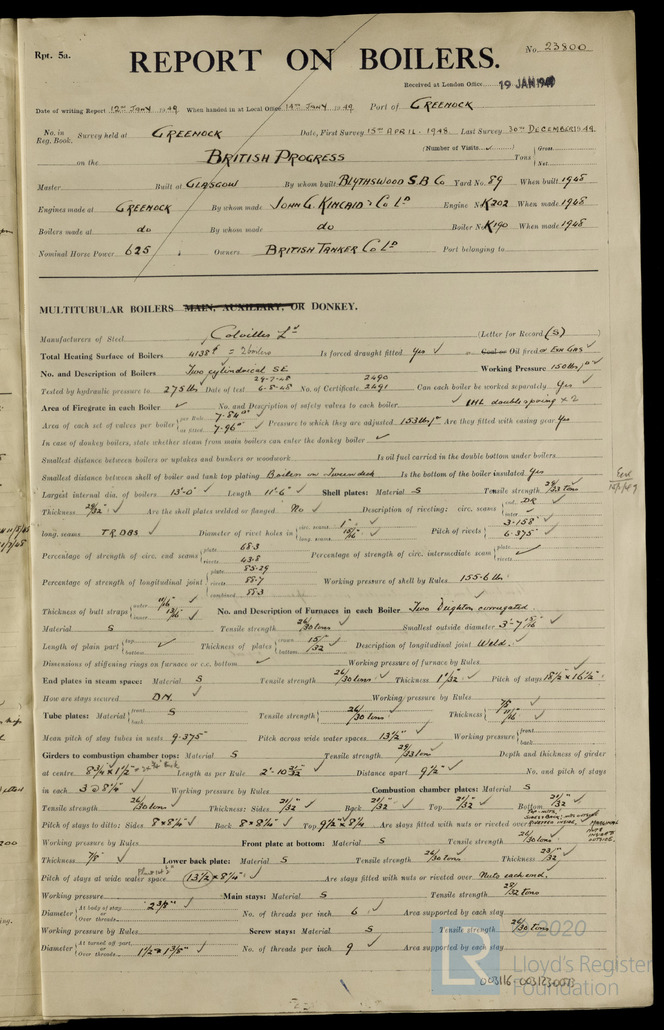 Rpt. 5a.
REPORT ON BOILERS.
No. 23800
Received at London Office 19 JAN 1949
Date of writing Report 12TH JANY 1949 When handed in at Local Office 14TH JANY 1949 Port of GREENOCK
No. in Reg. Book. Survey held at GREENOCK Date, First Survey 15TH APRIL 1948 Last Survey 30TH DECEMBER 1948
on the BRITISH PROGRESS (Number of Visits ) Tons { Gross Net
Master Built at GLASGOW By whom built BLYTHSWOOD S.B. Co Yard No. 89 When built 1948
Engines made at GREENOCK By whom made JOHN G. KINCAID & Co LD Engine No. K202 When made 1948
Boilers made at do By whom made do Boiler No. K190 When made 1948
Nominal Horse Power 625 Owners BRITISH TANKER Co LD Port belonging to
MULTITUBULAR BOILERS MAIN, AUXILIARY, OR DONKEY.
Manufacturers of Steel Colvilles Ld (Letter for Record (S) )
Total Heating Surface of Boilers 4138 = 2 boilers Is forced draught fitted Yes ✓ Coal or Oil fired or Exh Gas ✓
No. and Description of Boilers Two cylindrical SE Working Pressure 150 lbs
Tested by hydraulic pressure to 275 lbs Date of test 29-7-48 6-8-48 No. of Certificate 2490 2491 Can each boiler be worked separately Yes ✓
Area of Firegrate in each Boiler ✓ No. and Description of safety valves to each boiler IHL double spring × 2
Area of each set of valves per boiler { per Rule 7.84 as fitted 7.96 Pressure to which they are adjusted 153 lbs Are they fitted with easing gear Yes
In case of donkey boilers, state whether steam from main boilers can enter the donkey boiler ✓
Smallest distance between boilers or uptakes and bunkers or woodwork Is oil fuel carried in the double bottom under boilers
Smallest distance between shell of boiler and tank top plating Boilers on Tweendeck Is the bottom of the boiler insulated Yes
Largest internal dia. of boilers 13'-0" ✓ Length 11'-6" ✓ Shell plates: Material S Tensile strength 29/33 tons
Thickness 29/32 ✓ Are the shell plates welded or flanged No ✓ Description of riveting: circ. seams { end DR inter. ✓
long. seams T.R.DBS ✓ Diameter of rivet holes in { circ. seams 1" long. seams 15/16 ✓ Pitch of rivets { 3.158" 6.375"
Percentage of strength of circ. end seams { plate 68.3 rivets 43.8 Percentage of strength of circ. intermediate seam { plate rivets ✓
Percentage of strength of longitudinal joint { plate 85.29 rivets 88.7 combined 88.3 Working pressure of shell by Rules 155.6 lbs
Thickness of butt straps { outer 11/16 inner 13/16 ✓ No. and Description of Furnaces in each Boiler Two Deighton corrugated.
Material S Tensile strength 26/30 tons Smallest outside diameter 3'-7 15/16 ✓
Length of plain part { top bottom ✓ Thickness of plates { crown bottom 15/32 ✓ Description of longitudinal joint Weld. ✓
Dimensions of stiffening rings on furnace or c.c. bottom ✓ Working pressure of furnace by Rules
End plates in steam space: Material S Tensile strength 26/30 tons ✓ Thickness 1 1/32 ✓ Pitch of stays 18 1/2 × 16 1/2
How are stays secured D.N. ✓ Working pressure by Rules
Tube plates: Material { front back S Tensile strength { 26/30 tons Thickness { 7/8 11/16 ✓
Mean pitch of stay tubes in nests 9.375 Pitch across wide water spaces 13 1/2" ✓ Working pressure { front back
Girders to combustion chamber tops: Material S Tensile strength 29/33 ton Depth and thickness of girder
at centre 8 3/4 × 1 1/2 Length as per Rule 2'-10 Distance apart 9 1/2 ✓ No. and pitch of stays
in each 3 @ 8 1/4 Working pressure by Rules Combustion chamber plates: Material S
Tensile strength 26/30 tons Thickness: Sides 21/32 ✓ Back 21/32 ✓ Top 21/32 ✓ Bottom 21/32 ✓
Pitch of stays to ditto: Sides 8 × 8 1/4 ✓ Back 8 × 8 1/4 ✓ Top 9 1/2 × 8 1/4 Are stays fitted with nuts or riveted over
Working pressure by Rules Front plate at bottom: Material S Tensile strength 26/30 tons
Thickness 7/8 ✓ Lower back plate: Material S Tensile strength 26/30 tons ✓ Thickness 23/32 ✓
Pitch of stays at wide water space 13 1/2 × 8 1/4 Are stays fitted with nuts or riveted over Nuts each end.
Working pressure Main stays: Material S Tensile strength 28/32 tons
Diameter { At body of stay, or Over threads 2 3/8" ✓ No. of threads per inch 6 ✓ Area supported by each stay
Working pressure by Rules Screw stays: Material S Tensile strength 26/30 tons
Diameter { At turned off part, or Over threads 1 1/2 & 1 3/8" ✓ No. of threads per inch 9 ✓ Area supported by each stay
© 2020
LR
Lloyd's Register
Foundation
003116-003123-0053